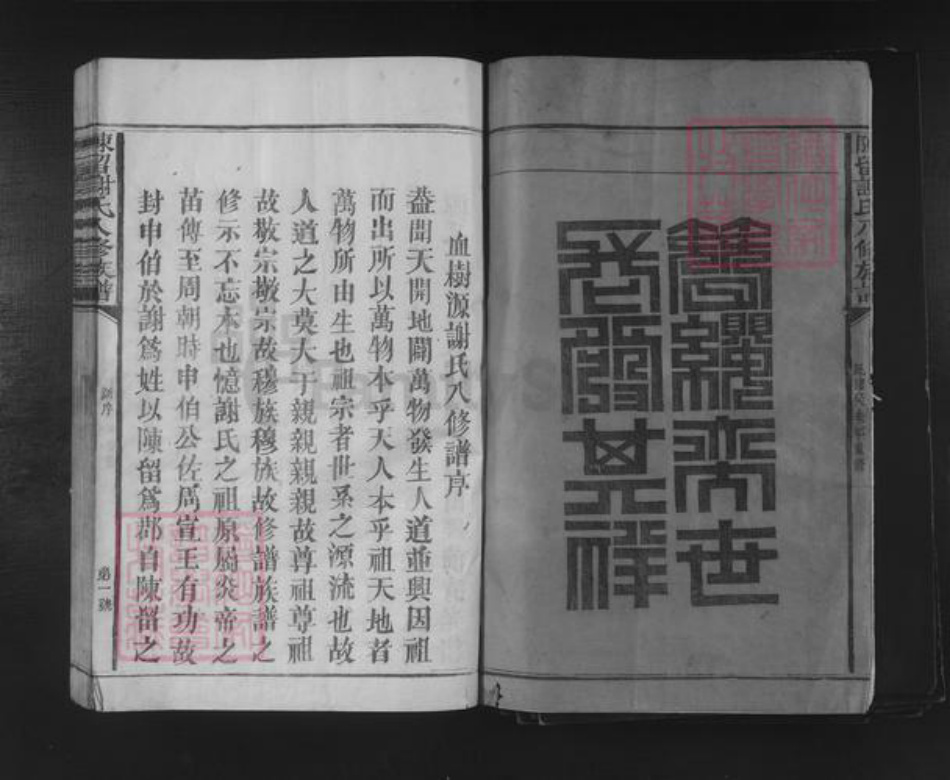 陳留謝氏八修族譜
簪纓奕世
長發其祥
血樹源謝氏八修譜序
葢聞天開地闢萬物發生人道並興因祖
而出所以萬物本乎天人本乎祖天地者
萬物所由生也祖宗者世系之源流也故
人道之大莫大于親親親親故尊祖尊祖
故敬宗敬宗故穆族穆族故修譜族譜之
修示不忘本也憶謝氏之祖原屬炎帝之
苗傳至周朝時申伯公佐周宣王有功故
封申伯於謝爲姓以陳留爲郡自陳留之
陳留謝氏八修族譜
源序
第一號